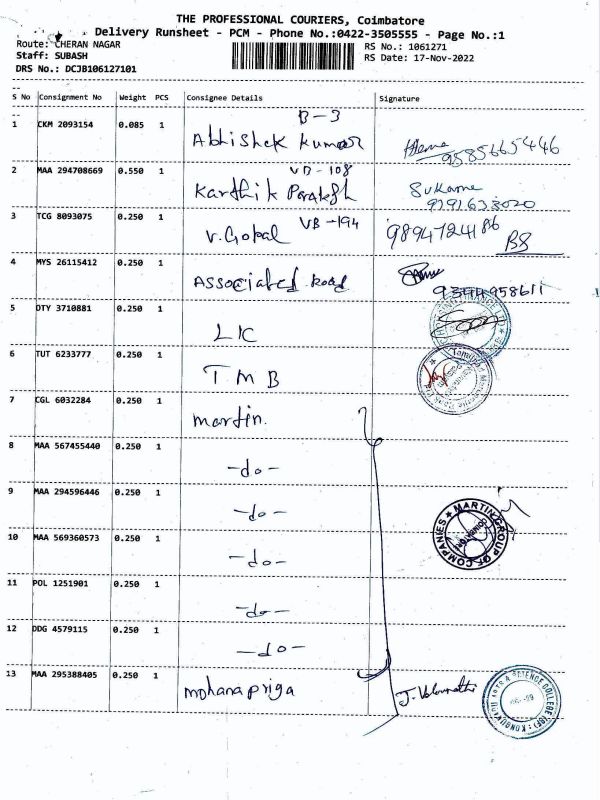 THE PROFESSIONAL COURIERS, Coimbatore
Delivery Runsheet - PCM - Phone No.:0422-3505555 - Page No.:1
Route: CHERAN NAGAR
RS No.: 1061271
Staff: SUBASH
RS Date: 17-Nov-2022
DRS No.: DCJB106127101
S No Consignment No Weight PCS Consignee Details Signature
B-3
1 CKM 2093154 0.085 1 Abhishek kumar 9585665446
VB-108
2 MAA 294708669 0.550 1 Karthik
9791633020
3 TCG 8093075 0.250 1 V. Gopal VB-194 9894724186
BS
4 MYS 26115412 0.250 1 Associated Road
9344958611
5 DTY 3710881 0.250 1 LIC
6 TUT 6233777 0.250 1 TMB
7 CGL 6032284 0.250 1 martin.
8 MAA 567455440 0.250 1 -do-
9 MAA 294596446 0.250 1 -do-
10 MAA 569360573 0.250 1 -do-
MARTIN GROUP OF COMPANIES
11 POL 1251901 0.250 1 -do-
12 DDG 4579115 0.250 1 -do-
13 MAA 295388405 0.250 1 mohanapriga
ARTS & SCIENCE COLLEGE